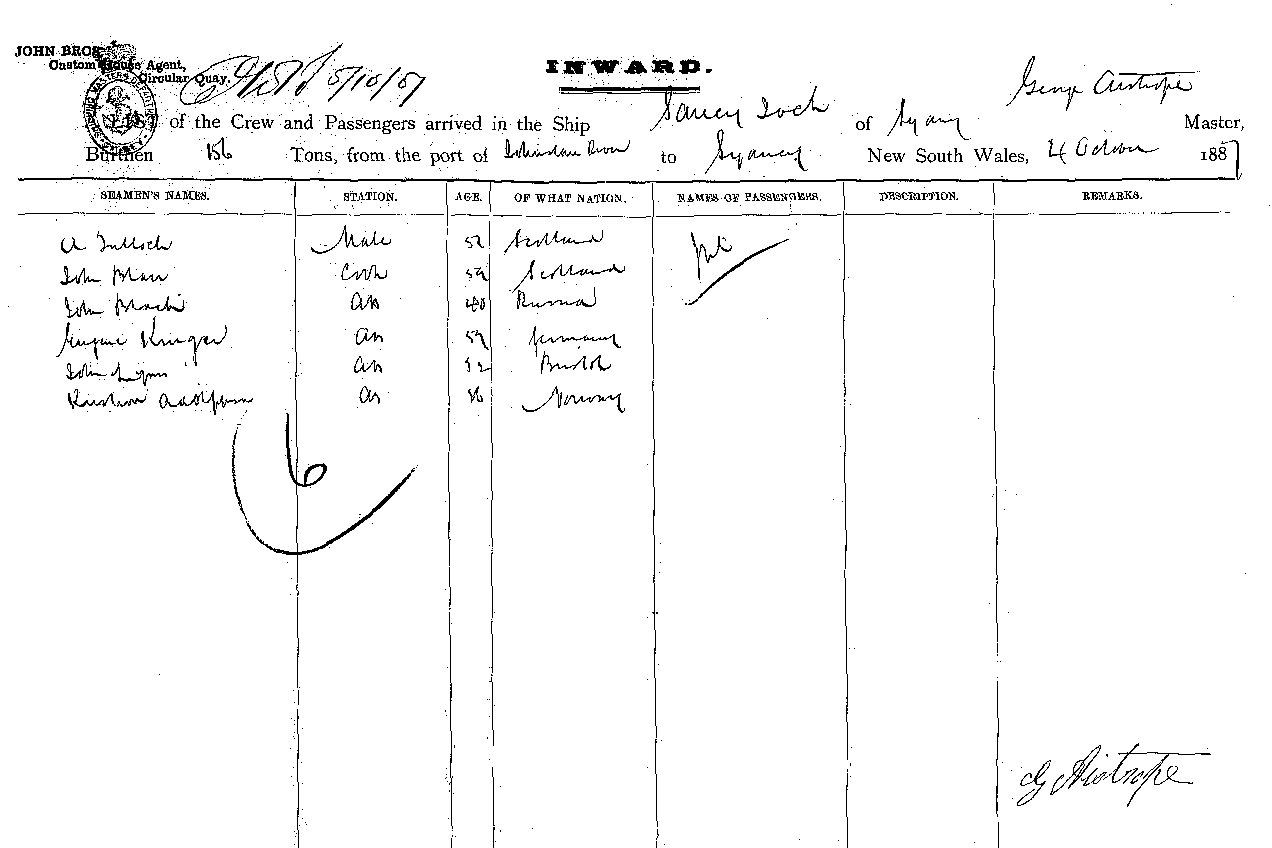 JOHN BROS
Custom House Agent,
Circular Quay.
5/10/87
INWARD.
George Aistrope
of the Crew and Passengers arrived in the Ship Saucy Jack of Sydney Master,
Burthen 156 Tons, from the port of Johnstone River to Sydney New South Wales, 4 October 1887
SEAMEN'S NAMES. STATION. AGE. OF WHAT NATION. NAMES OF PASSENGERS. DESCRIPTION. REMARKS.
A Tulloch Mate 52 Scotland Nil
John Blair Cook 59 Scotland
John AB 40 Russia
Eugene Kruger AB Germany
John AB Bristol
Adolfsen AB Norway
6
G Aistrope